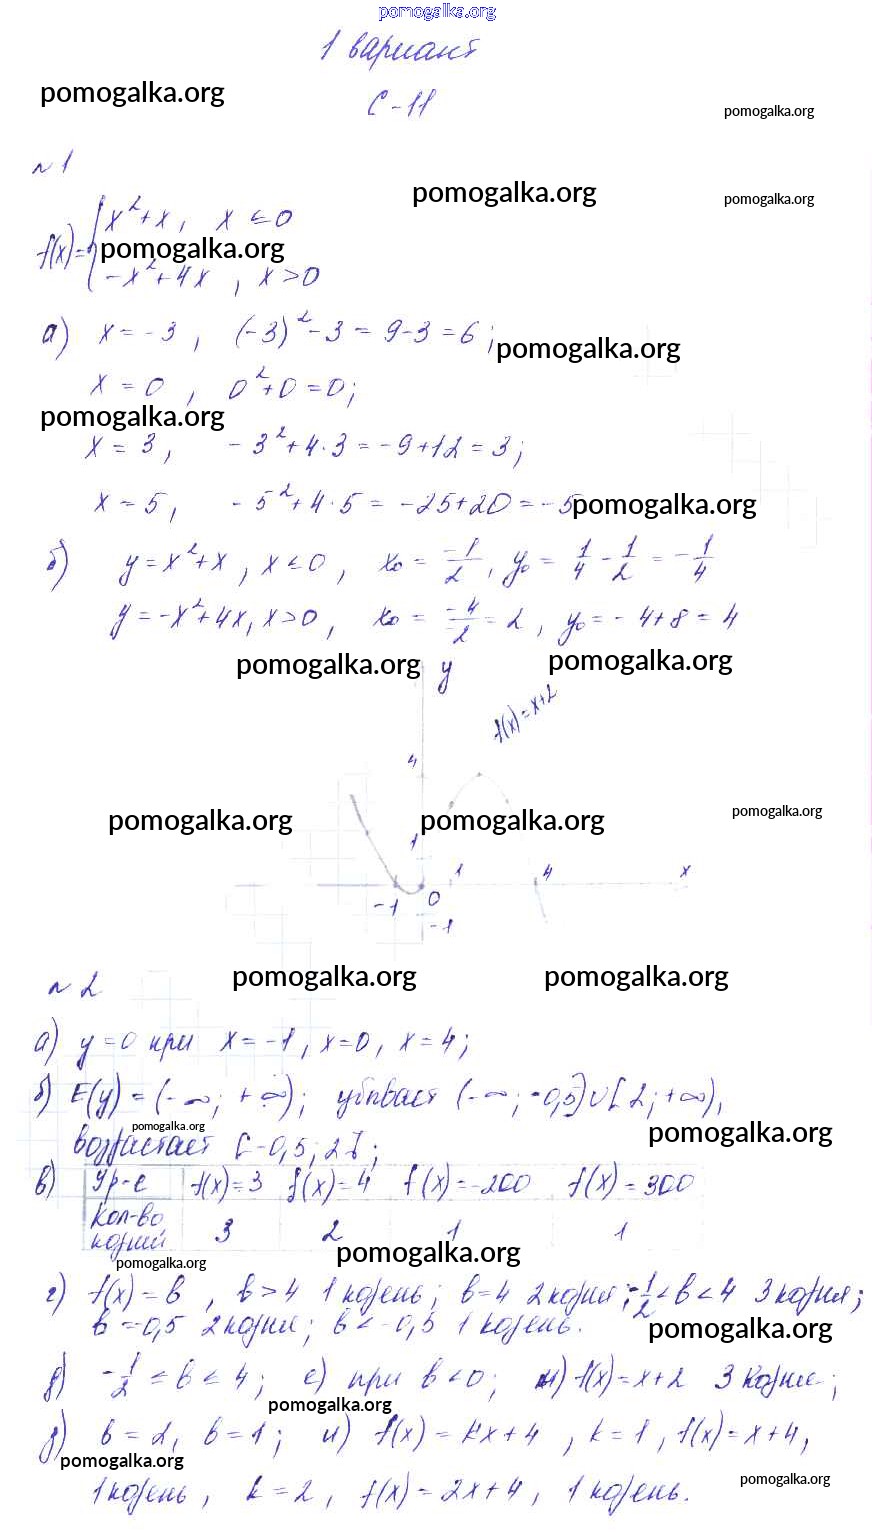 pomogalka.org
1 вариант
pomogalka.org
С-11
pomogalka.org
№1
pomogalka.org
pomogalka.org
x²+x, x ≤ 0
f(x)={ pomogalka.org
-x²+4x, x > 0
а) x = -3, (-3)²-3 = 9-3 = 6; pomogalka.org
x = 0, 0²+0 = 0;
pomogalka.org
x = 3, -3²+4·3 = -9+12 = 3;
x = 5, -5²+4·5 = -25+20 = -5 pomogalka.org
б) y = x²+x, x ≤ 0, x₀ = -1/2, y₀ = 1/4 - 1/2 = -1/4
y = -x²+4x, x>0, x₀ = -4/-2 = 2, y₀ = -4+8 = 4
pomogalka.org y pomogalka.org
f(x)=x+2
4
pomogalka.org 1 pomogalka.org pomogalka.org
-1 0 1 4 x
-1
№2 pomogalka.org pomogalka.org
а) y=0 при x=-1, x=0, x=4;
б) E(y) = (-∞; +∞); убывает (-∞; -0,5]∪[2; +∞),
pomogalka.org pomogalka.org
возрастает [-0,5; 2];
в) Ур-е f(x)=3 f(x)=4 f(x)=-200 f(x)=300
Кол-во
корней 3 2 1 1
pomogalka.org
pomogalka.org
г) f(x)=b, b>4 1 корень; b=4 2 корня; -1/2<b<4 3 корня;
b=-0,5 2 корня; b<-0,5 1 корень. pomogalka.org
д) -1/2 ≤ b ≤ 4; е) при b<0; ж) f(x)=x+2 3 корня;
pomogalka.org
з) b=2, b=1; и) f(x)=kx+4, k=1, f(x)=x+4,
pomogalka.org pomogalka.org
1 корень, k=2, f(x)=2x+4, 1 корень.